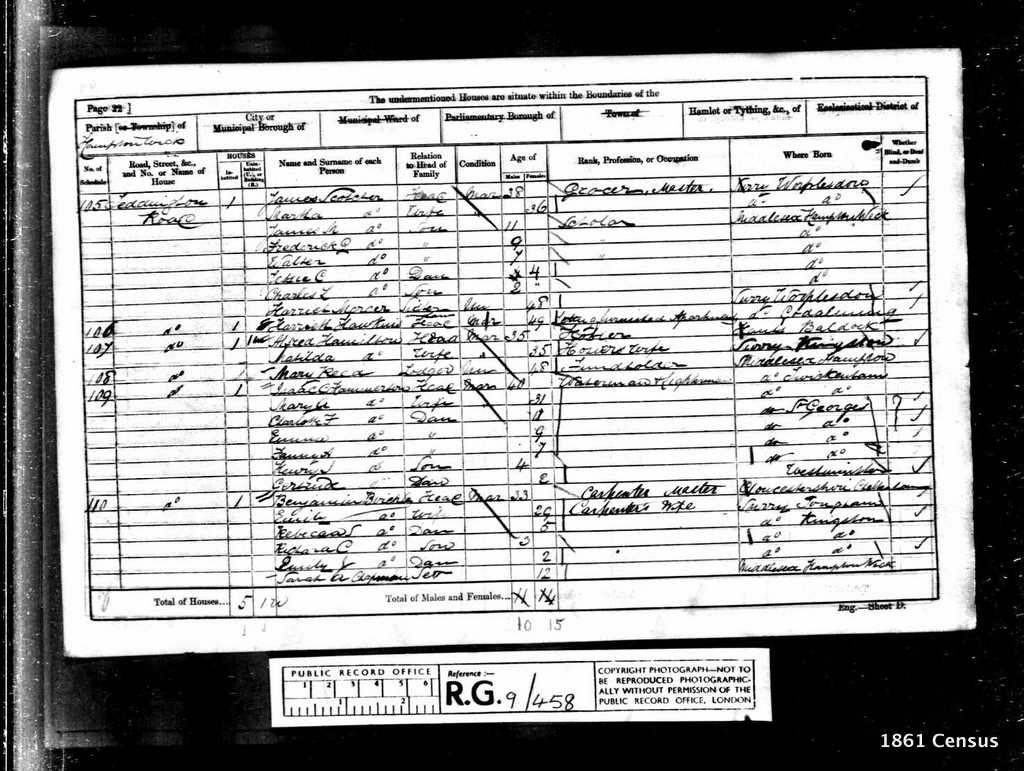 The undermentioned Houses are situate within the Boundaries of the
Page 22 ]
Parish [or Township] of
City or Municipal Borough of
Municipal Ward of
Parliamentary Borough of
Town of
Hamlet or Tything, &c., of
Ecclesiastical District of
Hampton Wick
No. of Schedule
Road, Street, &c., and No. or Name of House
HOUSES
In-habited
Unin-habited (U.), or Building (B.)
Name and Surname of each Person
Relation to Head of Family
Condition
Age of
Males
Females
Rank, Profession, or Occupation
Where Born
Whether Blind, or Deaf-and-Dumb
105 Teddington 1 James Head Mar 38 Grocer Master Surry Worplesdon
Road Martha do Wife " 36 do do
James do Son 11 Scholar Middlesex Hampton Wick
Frederick do " 9 " do
Walter do " 7 do
C do Dau 4 do
Charles L do Son 2 do
Harriet Mercer Un 48 Surry Worplesdon
106 do 1 Harriett Hawkins Head Mar 49 do Godalming
107 do 1 Alfred Hamilton Head Mar 35 Hosier Baldock
Matilda do Wife " 35 Hosiers Wife Surry Kingston
108 do Mary Lodger Un 48 Fundholder Middlesex Hampton
109 do 1 Isaac C Hammerton Head Mar 40 Waterman & Lighterman do Twickenham
Mary A do Wife 31 do do
Charlotte F do Dau 11 do St Georges
Emma do " 9 do do
Fanny A do " 7 do do
Henry do Son 4 do do
Gertrude Dau 2 Westminster
110 do 1 Benjamin Head Mar 33 Carpenter Master Gloucestershire Cheltenham
Emily do Wife 29 Carpenter's Wife Surry
Rebecca do Dau 5 do Kingston
Richard C do Son 3 do do
Emily J do Dau 2 do do
Sarah A Chapman 12 Middlesex Hampton Wick
Total of Houses... 5
Total of Males and Females... 11 14
Eng.—Sheet D.
10 15
PUBLIC RECORD OFFICE
1 2 3 4 5 6
1 2
Reference :—
R.G. 9/458
COPYRIGHT PHOTOGRAPH—NOT TO
BE REPRODUCED PHOTOGRAPHIC-
ALLY WITHOUT PERMISSION OF THE
PUBLIC RECORD OFFICE, LONDON
1861 Census